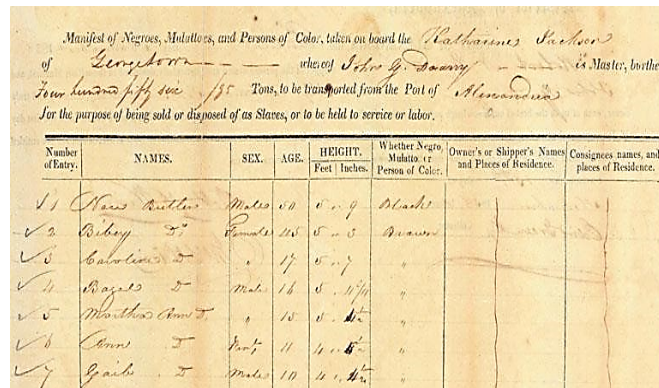 Manifest of Negroes, Mulattoes, and Persons of Color, taken on board the Katharine Jackson
of Georgetown whereof John G. is Master, burthe
Four hundred fifty six /95 Tons, to be transported from the Port of Alexandria
for the purpose of being sold or disposed of as Slaves, or to be held to service or labor.
Number of Entry. NAMES. SEX. AGE. HEIGHT. Feet Inches. Whether Negro, Mulatto, or Person of Color. Owner's or Shipper's Names and Places of Residence. Consignees names, and places of Residence.
1 Nace Butler Male 50 5 " 9 Black
2 Bibey Do Female 45 5 " 3 Brown
3 Caroline D " 17 5 " 7 "
4 Bazel D Male 16 5 "
5 Martha Ann D " 15 5 " 4½ "
6 Ann D 11 4 " "
7 Gabe D Male 10 4 " 4½ "